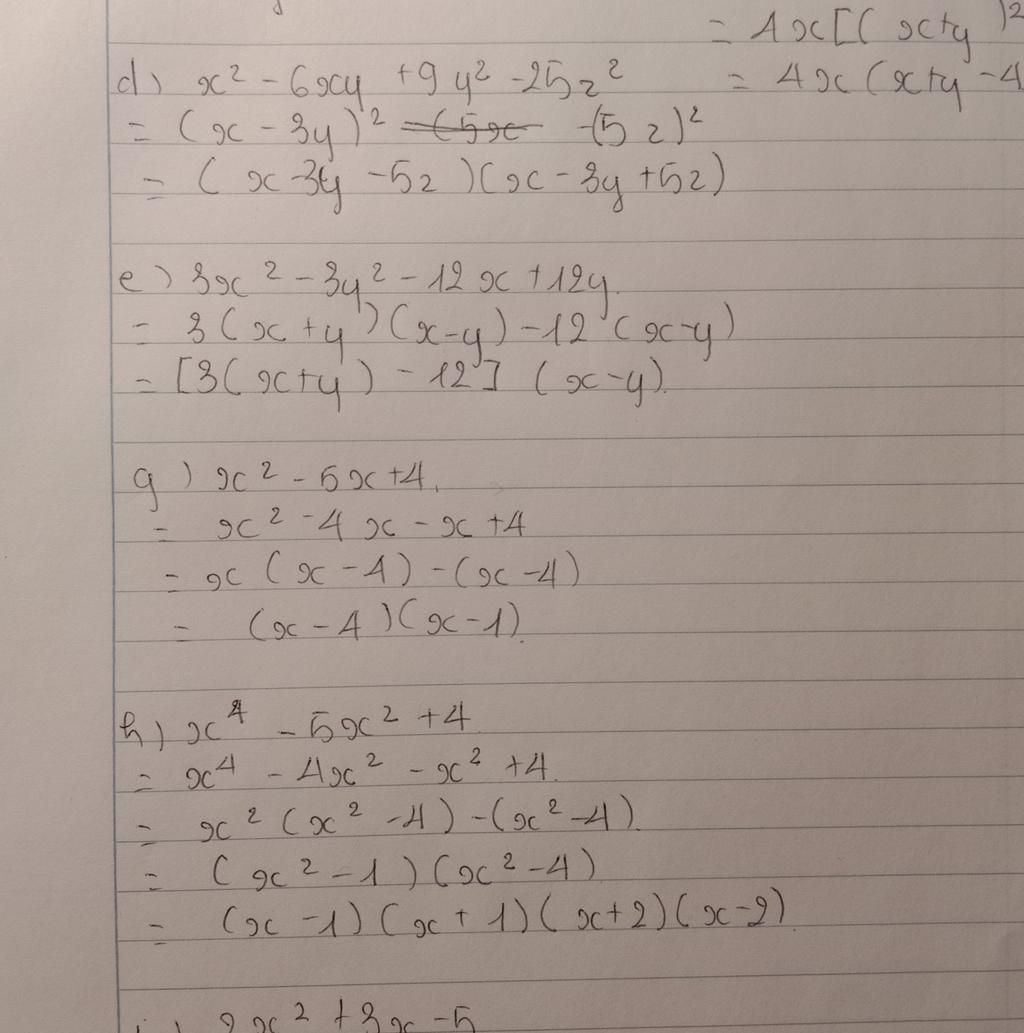 = 4x[(x+y)²
d) x² - 6xy + 9y² - 25z²
= 4x(x+y-4
= (x - 3y)² -(5z)²
= (x-3y -5z)(x - 3y +5z)
e) 3x² - 3y² - 12x + 12y.
= 3(x+y)(x-y) - 12(x-y)
= [3(x+y) - 12] (x-y).
g) x² - 5x + 4.
= x² - 4x - x + 4
= x(x - 4) - (x - 4)
= (x - 4)(x - 1).
h) x⁴ - 5x² + 4
= x⁴ - 4x² - x² + 4.
= x²(x² - 4) - (x² - 4).
= (x² - 1)(x² - 4)
= (x - 1)(x + 1)(x + 2)(x - 2).
x² + 3x - 5